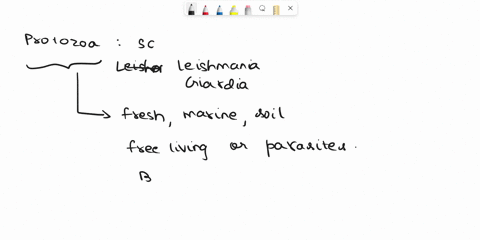 Protozoa : SC
Leishmania
Giardia
fresh, marine, soil
free living or parasites.
B